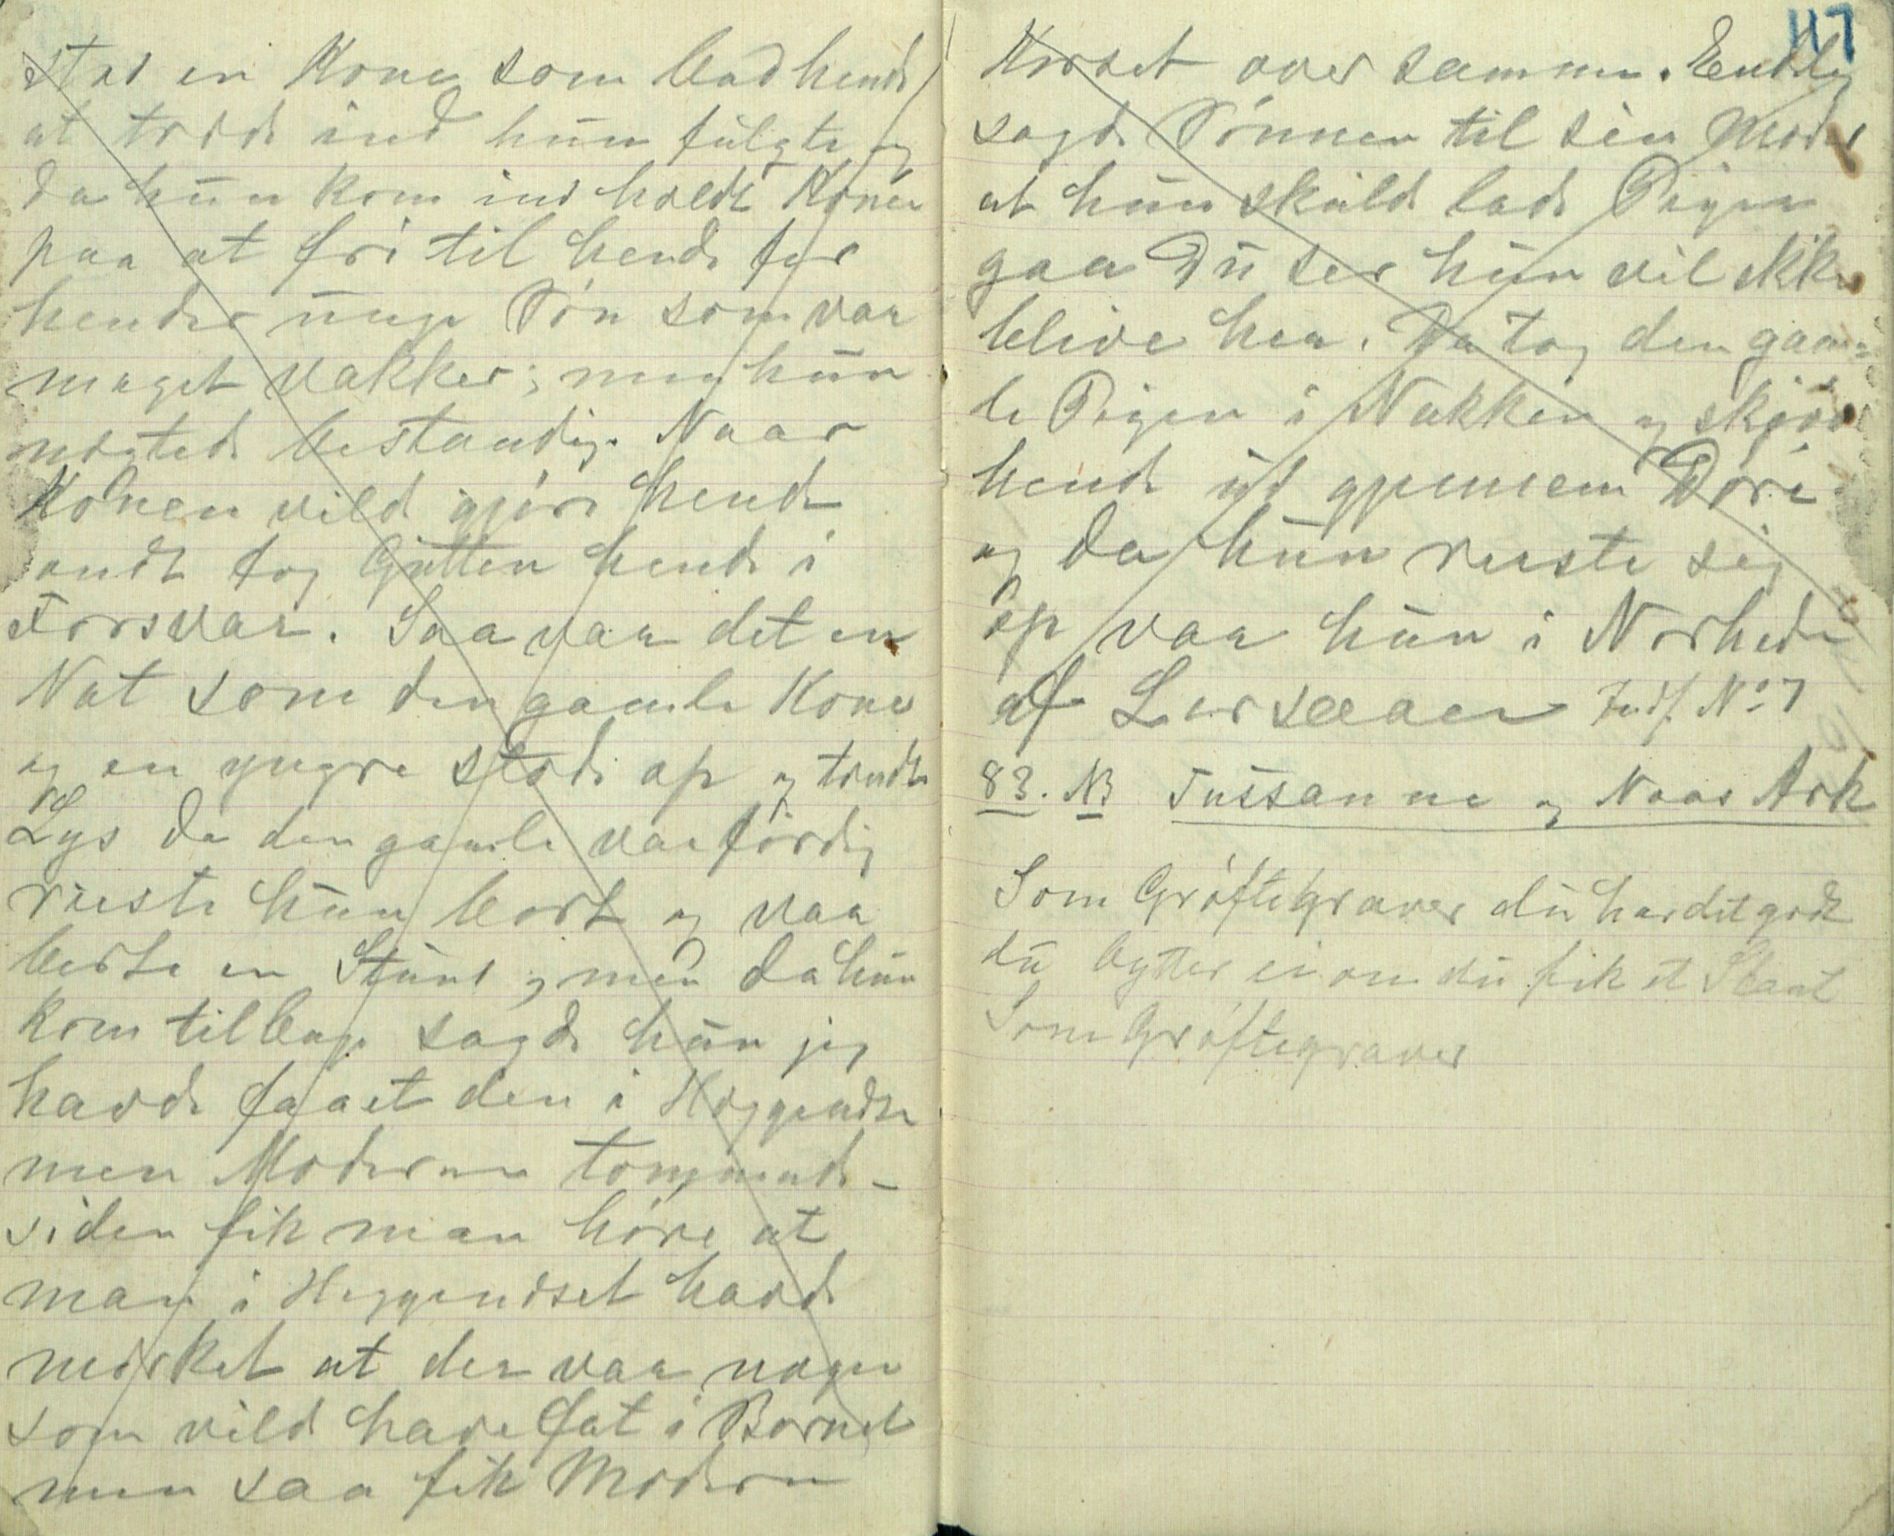 stod en Kone som bad hende
at træde ind hun fulgte og
da hun kom ind holdt Konen
paa at fri til hende for
hendes unge Søn som var
meget vakker; men hun
nægtede bestandig. Naar
Konen vilde gjøre hende
ondt tog Gutten hende i
Forsvar. Saa var det en
Nat som den gamle Kone
og en yngre stod op og tændte
Lys da den gamle var færdig
reiste hun bort og var
borte en Stund; men da hun
kom tilbage sagde hun jeg
havde faaet den i
men Moderen
siden fik man høre at
man i havde
mærket at der var nogen
som vilde have fat i Barnet
men saa fik Moderen
117
Korset over sammen. Endelig
sagde Sønnen til sin Moder
at hun skulde lade Pigen
gaa Du ser hun vil ikke
blive her. Da tog den gam=
le Pigen i Nakken og skjøv
hende ud gjennem Døren
og da hun reiste sig
op var hun i Nærheden
af Lursæaaen Indf. No 7
83. NB Tussanne og Noas Ark
Som Grøftegraver du har det godt
du bytter ei om du fik et Slaat
Som Grøftegraver